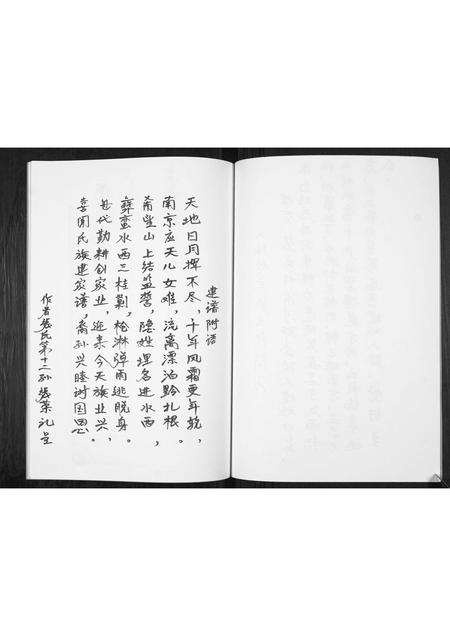 建谱附语
天地日月挥不尽,千年风霜更年轮,
南京应天儿女难,流离漂泊黔扎根。
希望山上结盟誓,隐姓埋名进水西,
彝蛮水西三桂剿,枪淋弹雨逃脱身。
世代勤耕创家业,迎来今天族业兴,
喜闻氏族建家谱,裔孙兴隆谢国恩。
作者 氏第十二孙 荣礼呈